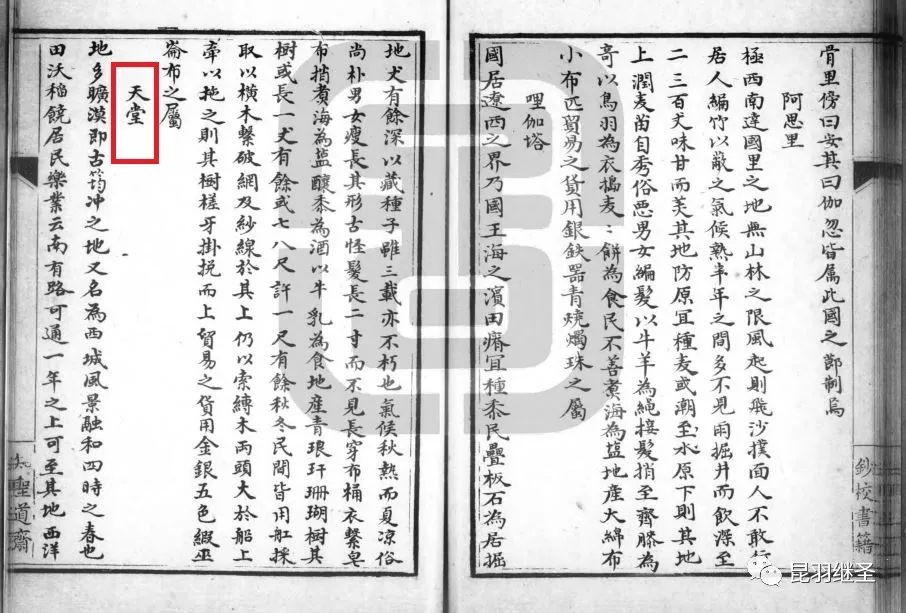 骨里傍曰安其曰伽忽皆屬此國之節制焉
阿思里
極西南達國里之地無山林之限風起則飛沙撲面人不敢行
居人編竹以蔽之氣候熱半年之間多不見雨掘井而飲深至
二三百丈味甘而美其地防原宜種麦或潮至水原下則其地
上潤麦苗自秀俗悪男女編髮以牛羊為繩接髮捎至齊膝為
奇以鳥羽為衣搗麦:餅為食民不善煮海為盐地産大綿布
小布匹貿易之貨用銀鉄器青燒燭珠之屬
哩伽塔
國居遼西之界乃國王海之濱田瘠宜種黍民疊板石為居掘
鈔校書籍
地丈有餘深以藏種子雖三載亦不朽也氣候秋熱而夏凉俗
尚朴男女瘦長其形古怪髮長二寸而不見長穿布桶衣繫皂
布捎煮海為盐釀黍為酒以牛乳為食地産青琅玕珊瑚樹其
樹或長一丈有餘或七八尺許一尺有餘秋冬民間皆用舡採
取以横木繫破網及紗線於其上仍以索縛木兩頭人於船上
牽以拖之則其樹槎牙掛挽而上貿易之貨用金銀五色緞巫
崙布之屬
天堂
地多曠漠即古筠冲之地又名為西域風景融和四時之春也
田沃稻饒居民樂業云南有路可通一年之上可至其地西洋
知聖道齋
昆羽继圣